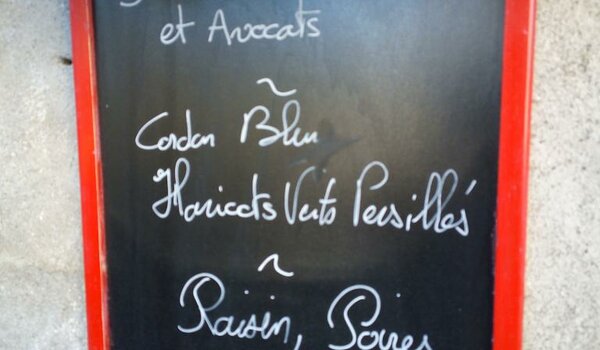 et Avocats
~
Cordon Bleu
Haricots Verts Persillés
~
Raisin, Poires